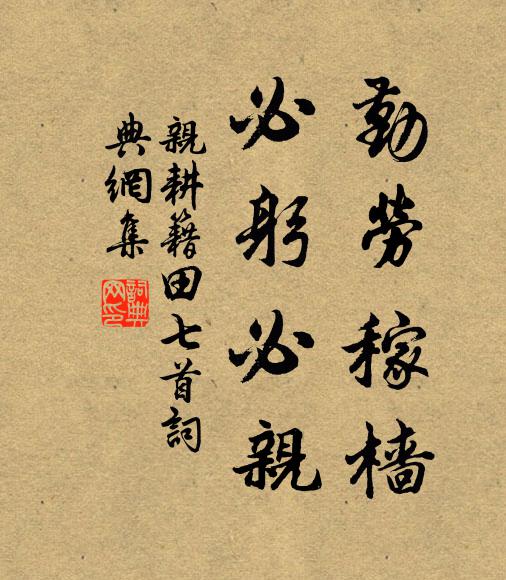 勤勞稼檣
必躬必親
親耕籍田七首詞
典網集
詞典網印